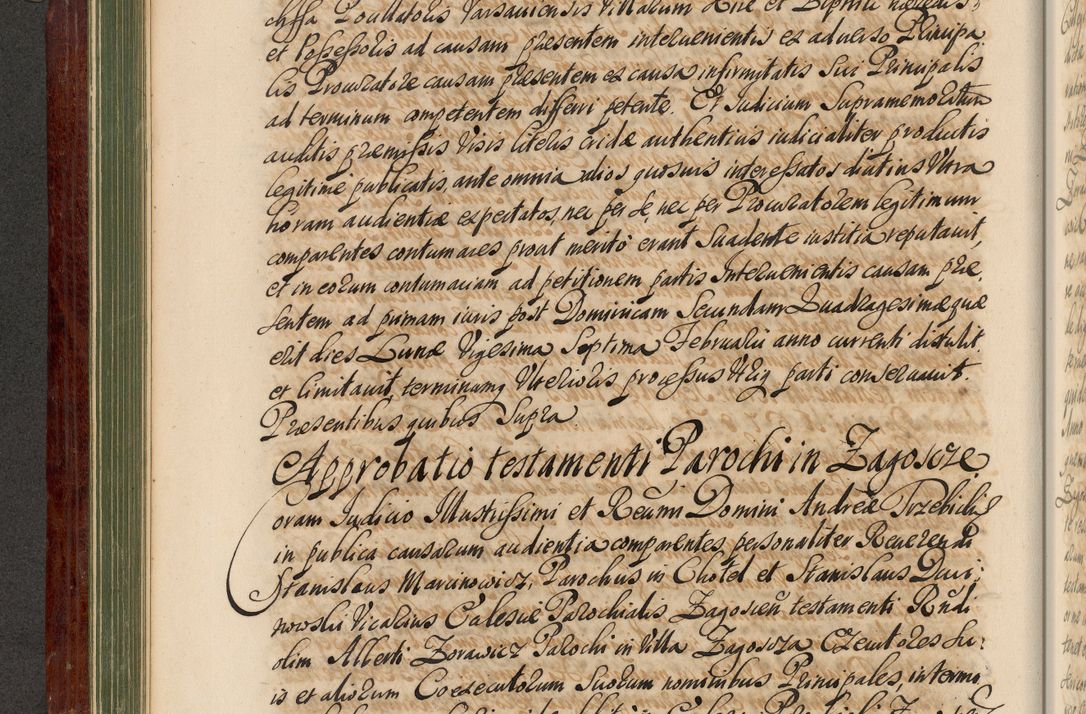 et Possessoris ad causam præsentem interuenientis ex aduerso Principa
lis Procuratore causam præsentem ex causa infirmitatis Sui Principalis
ad terminum competentem differri petente. Et Iudicium Supramemoratum
auditis præmissis Visis literis cridæ authentius iudicialiter productis
legitime publicatis, ante omnia alios quosuis interessatos diatius Vltra
horam audientiæ expectatos, nec per se, nec per Procuratorem legitimum
comparentes contumaces prout merito erant Suadente iustitia reputauit,
et in eorum contumaciam ad petitionem partis Interuenientis causam præ
sentem ad primam iuris post Dominicam Secundam Quadragesimæ quæ
erit dies Lunæ Vigesima Septima Februarii anno currenti distulit
et limitauit, terminumq Vlterioris processus Vtriq parti conseruauit.
Præsentibus quibus Supra
Approbatio testamenti Parochi in Zagoscze
Coram Iudicio Illustrissimi et Reumi Domini Andreæ Trzebicki
in publica causarum audientia comparentes personaliter Reuerendi
Stanislaus Marcinowicz, Parochus in Chotel et Stanislaus Dani
nowski Vicarius Ecclesiæ Parochialis Zagoscien testamenti Rndi
olim Alberti Zorawicz Parochi in Villa Zagoscza Executores su
is et aliorum Coexecutorum Suorum nominibus Principales interme